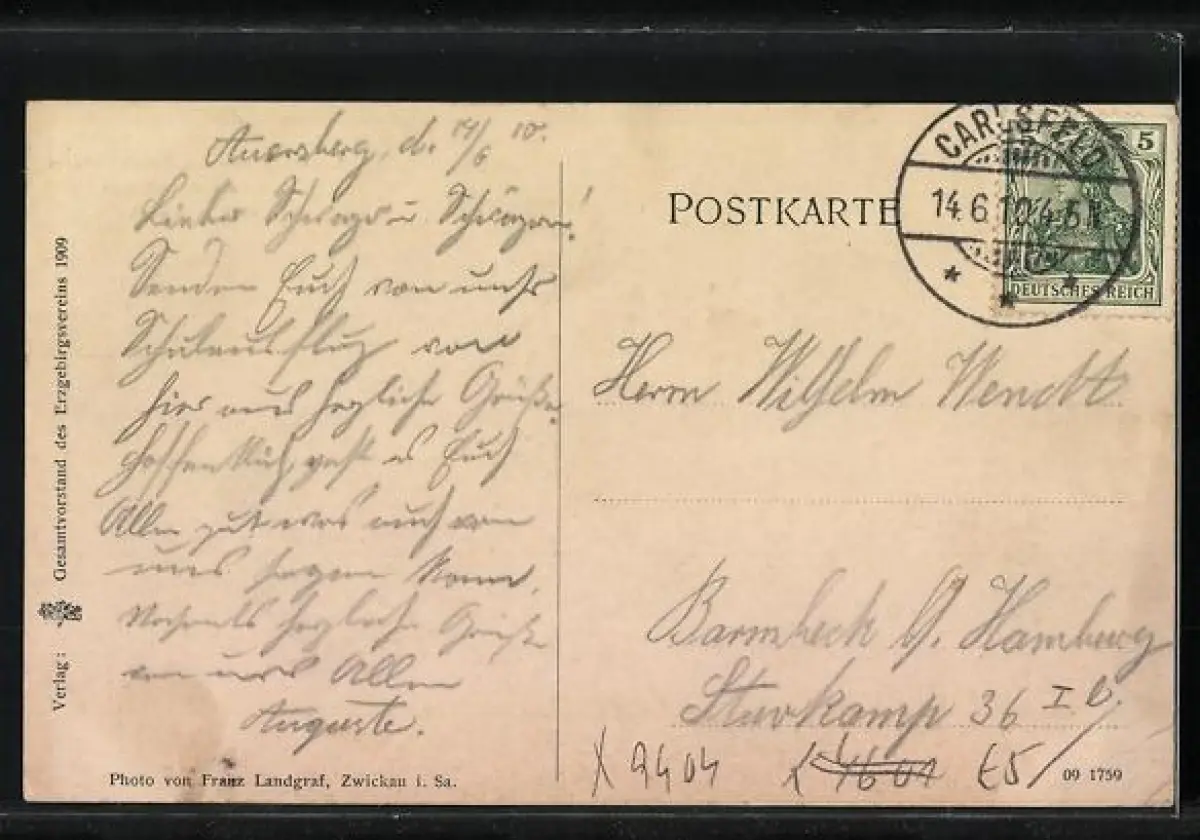 Auersberg, d. 14/6 10.
Lieber Schwager u. Schwägerin!
Senden Euch von unsr
Schulausflug von
hier aus herzliche Grüße.
Hoffentlich geht es Euch
Allen gut was auch von
uns sagen kann.
Nochmals herzliche Grüße
von uns Allen
Auguste.
Verlag: Gesamtvorstand des Erzgebirgsvereins 1909
Photo von Franz Landgraf, Zwickau i. Sa.
POSTKARTE
CARLSFELD
14.6.10.4-5N
5
DEUTSCHES REICH
Herrn Wilhelm Wendt
Barmbeck b. Hamburg
Stuvkamp 36 I b.
X 9404
4601
E5/
09 1759